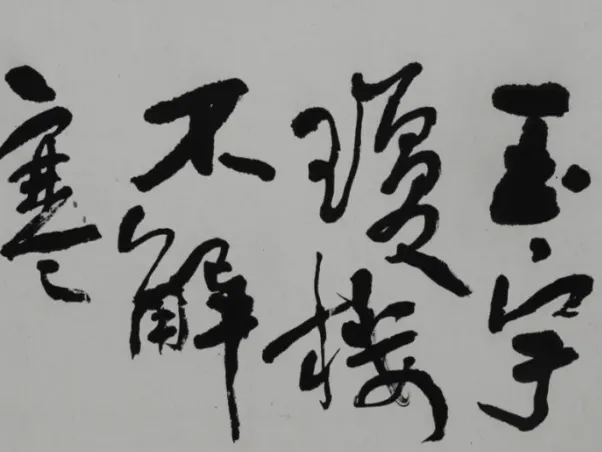 玉宇
琼楼
不解
寒